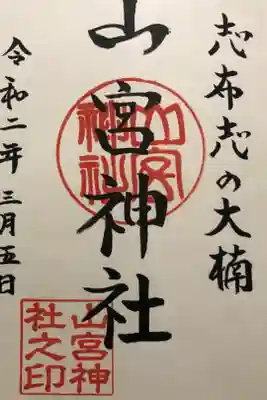 志布志の大楠
山宮神社
令和二年三月五日
山宮
神社
山宮神
社之印